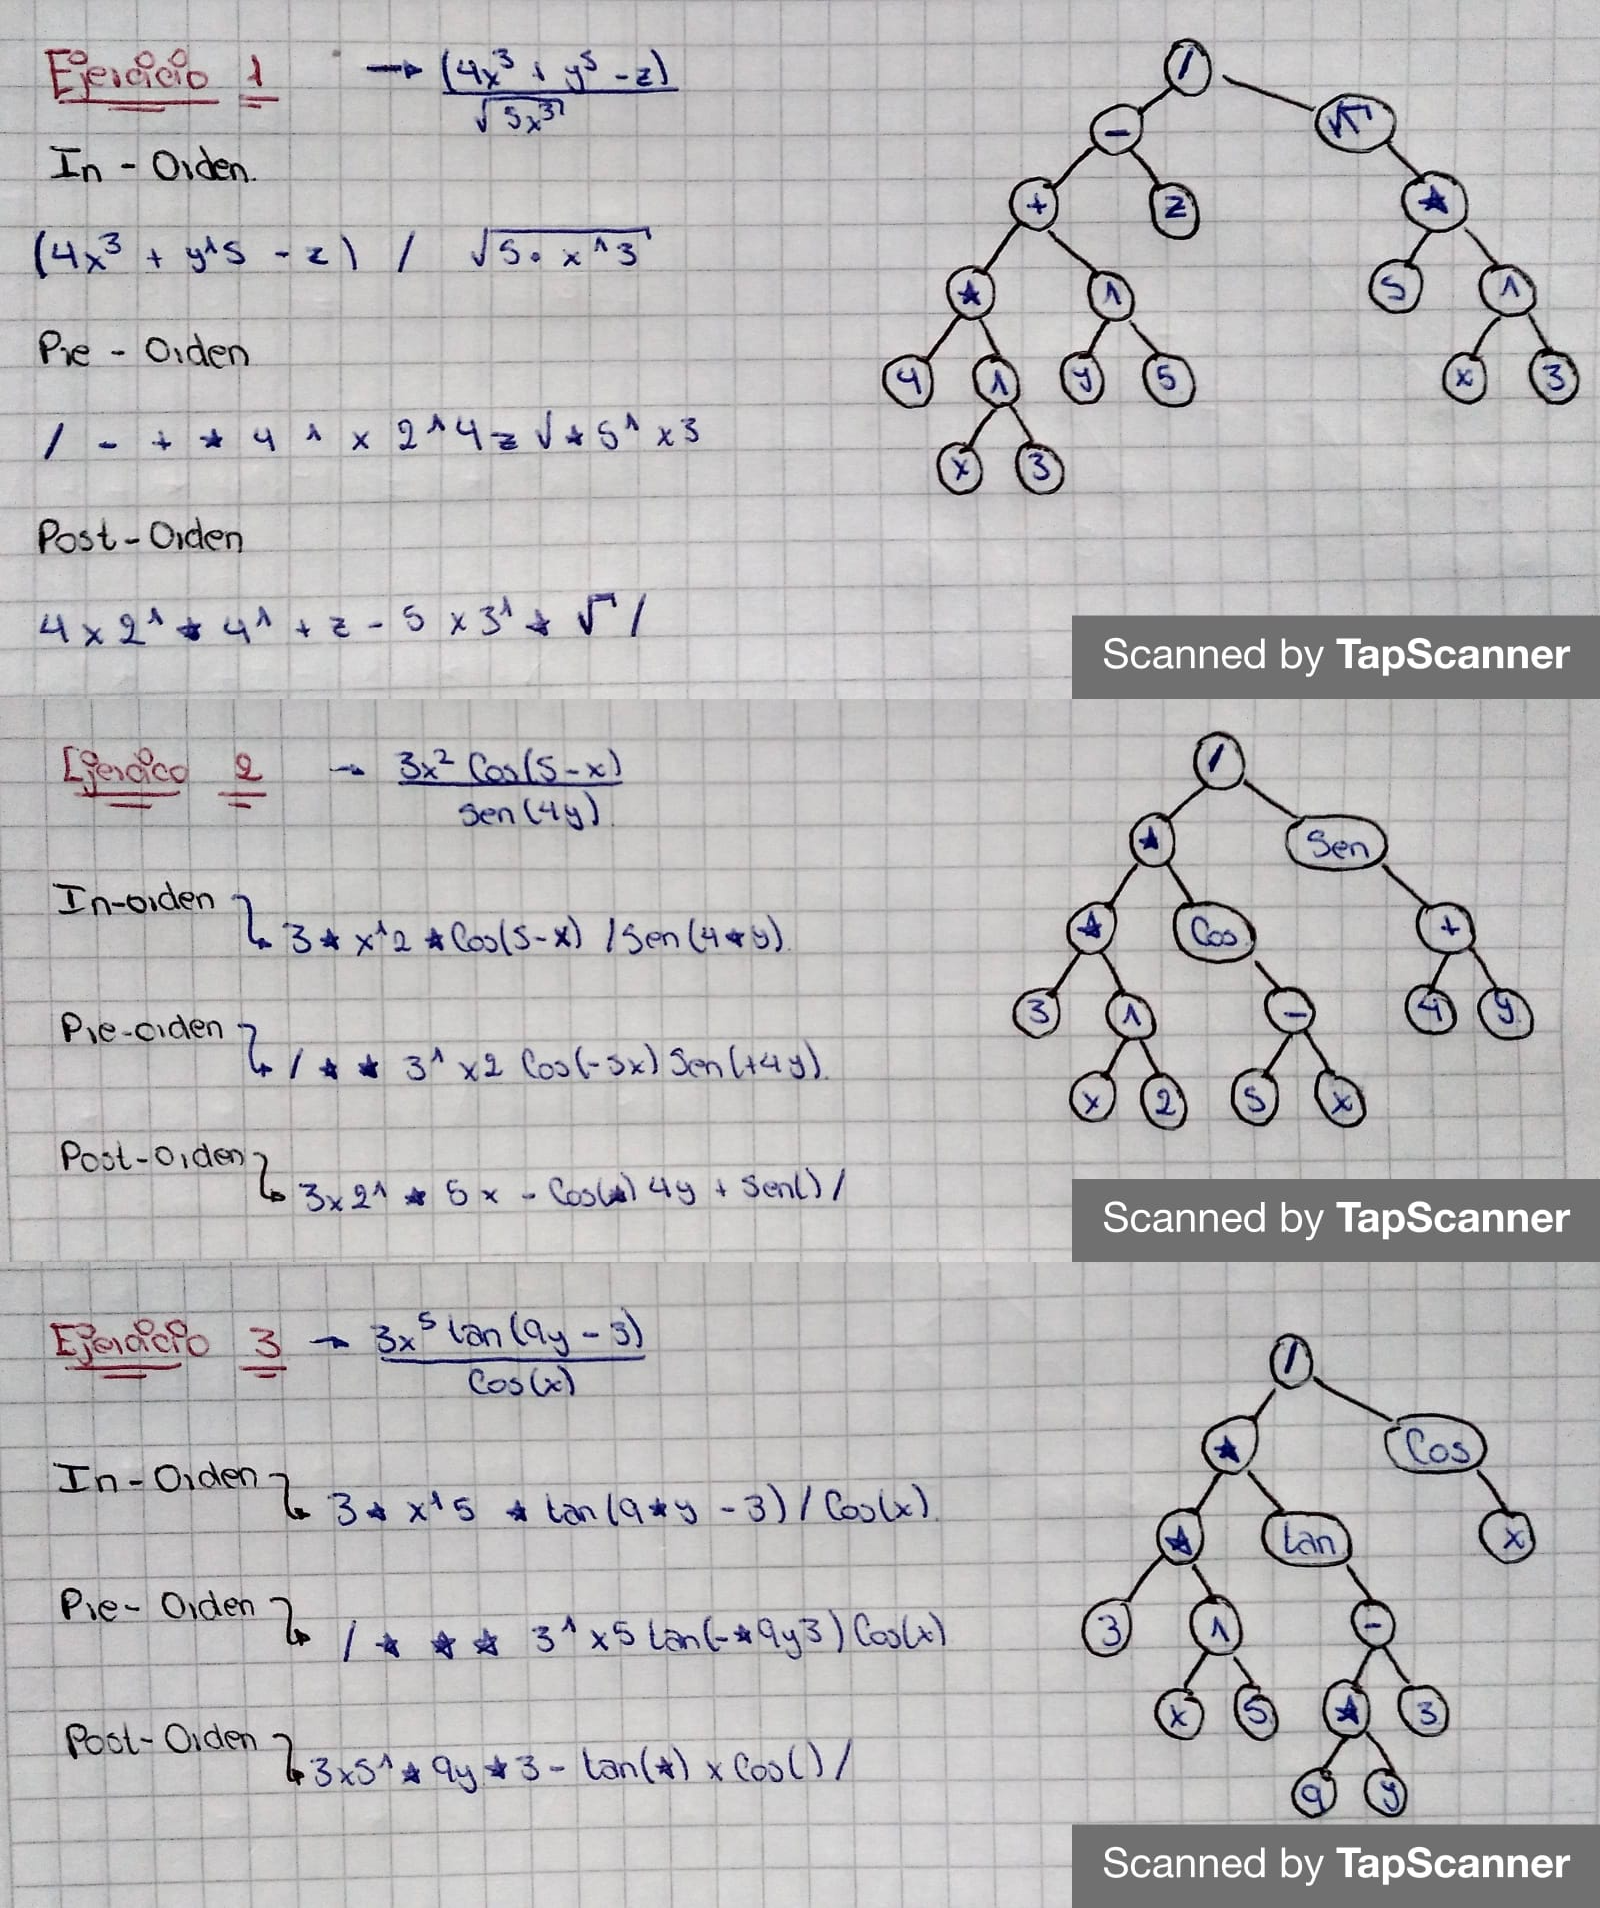 Ejercicio 1 → (4x³ + y⁵ - z)
√5x³
In - Orden.
(4x³ + y^5 - z) / √5 · x^3
Pre - Orden
/ - + * 4 ^ x 2 ^ 4 z √ * 5 ^ x 3
Post - Orden
4 x 2 ^ * 4 ^ + z - 5 x 3 ^ * √ /
/
- √
+ z *
* ^ 5 ^
4 ^ y 5 x 3
x 3
Scanned by TapScanner
Ejercico 2 → 3x² Cos(5-x)
Sen(4y)
In-orden
3 * x^2 * Cos(5-x) / Sen(4*y).
Pre-orden
/ * * 3^ x2 Cos(-5x) Sen(+4y).
Post-Orden
3x2^ * 5x - Cos(*) 4y + Sen() /
/
* Sen
* Cos +
3 ^ - 4 y
x 2 5 x
Scanned by TapScanner
Ejercicio 3 → 3x⁵ tan(9y - 3)
Cos(x)
In - Orden
3 * x^5 * tan(9*y - 3) / Cos(x).
Pre - Orden
/ * * * 3^ x5 tan(-*9y3) Cos(x)
Post - Orden
3x5^ * 9y * 3 - tan(*) x Cos() /
/
* Cos
* tan x
3 ^ -
x 5 * 3
9 y
Scanned by TapScanner